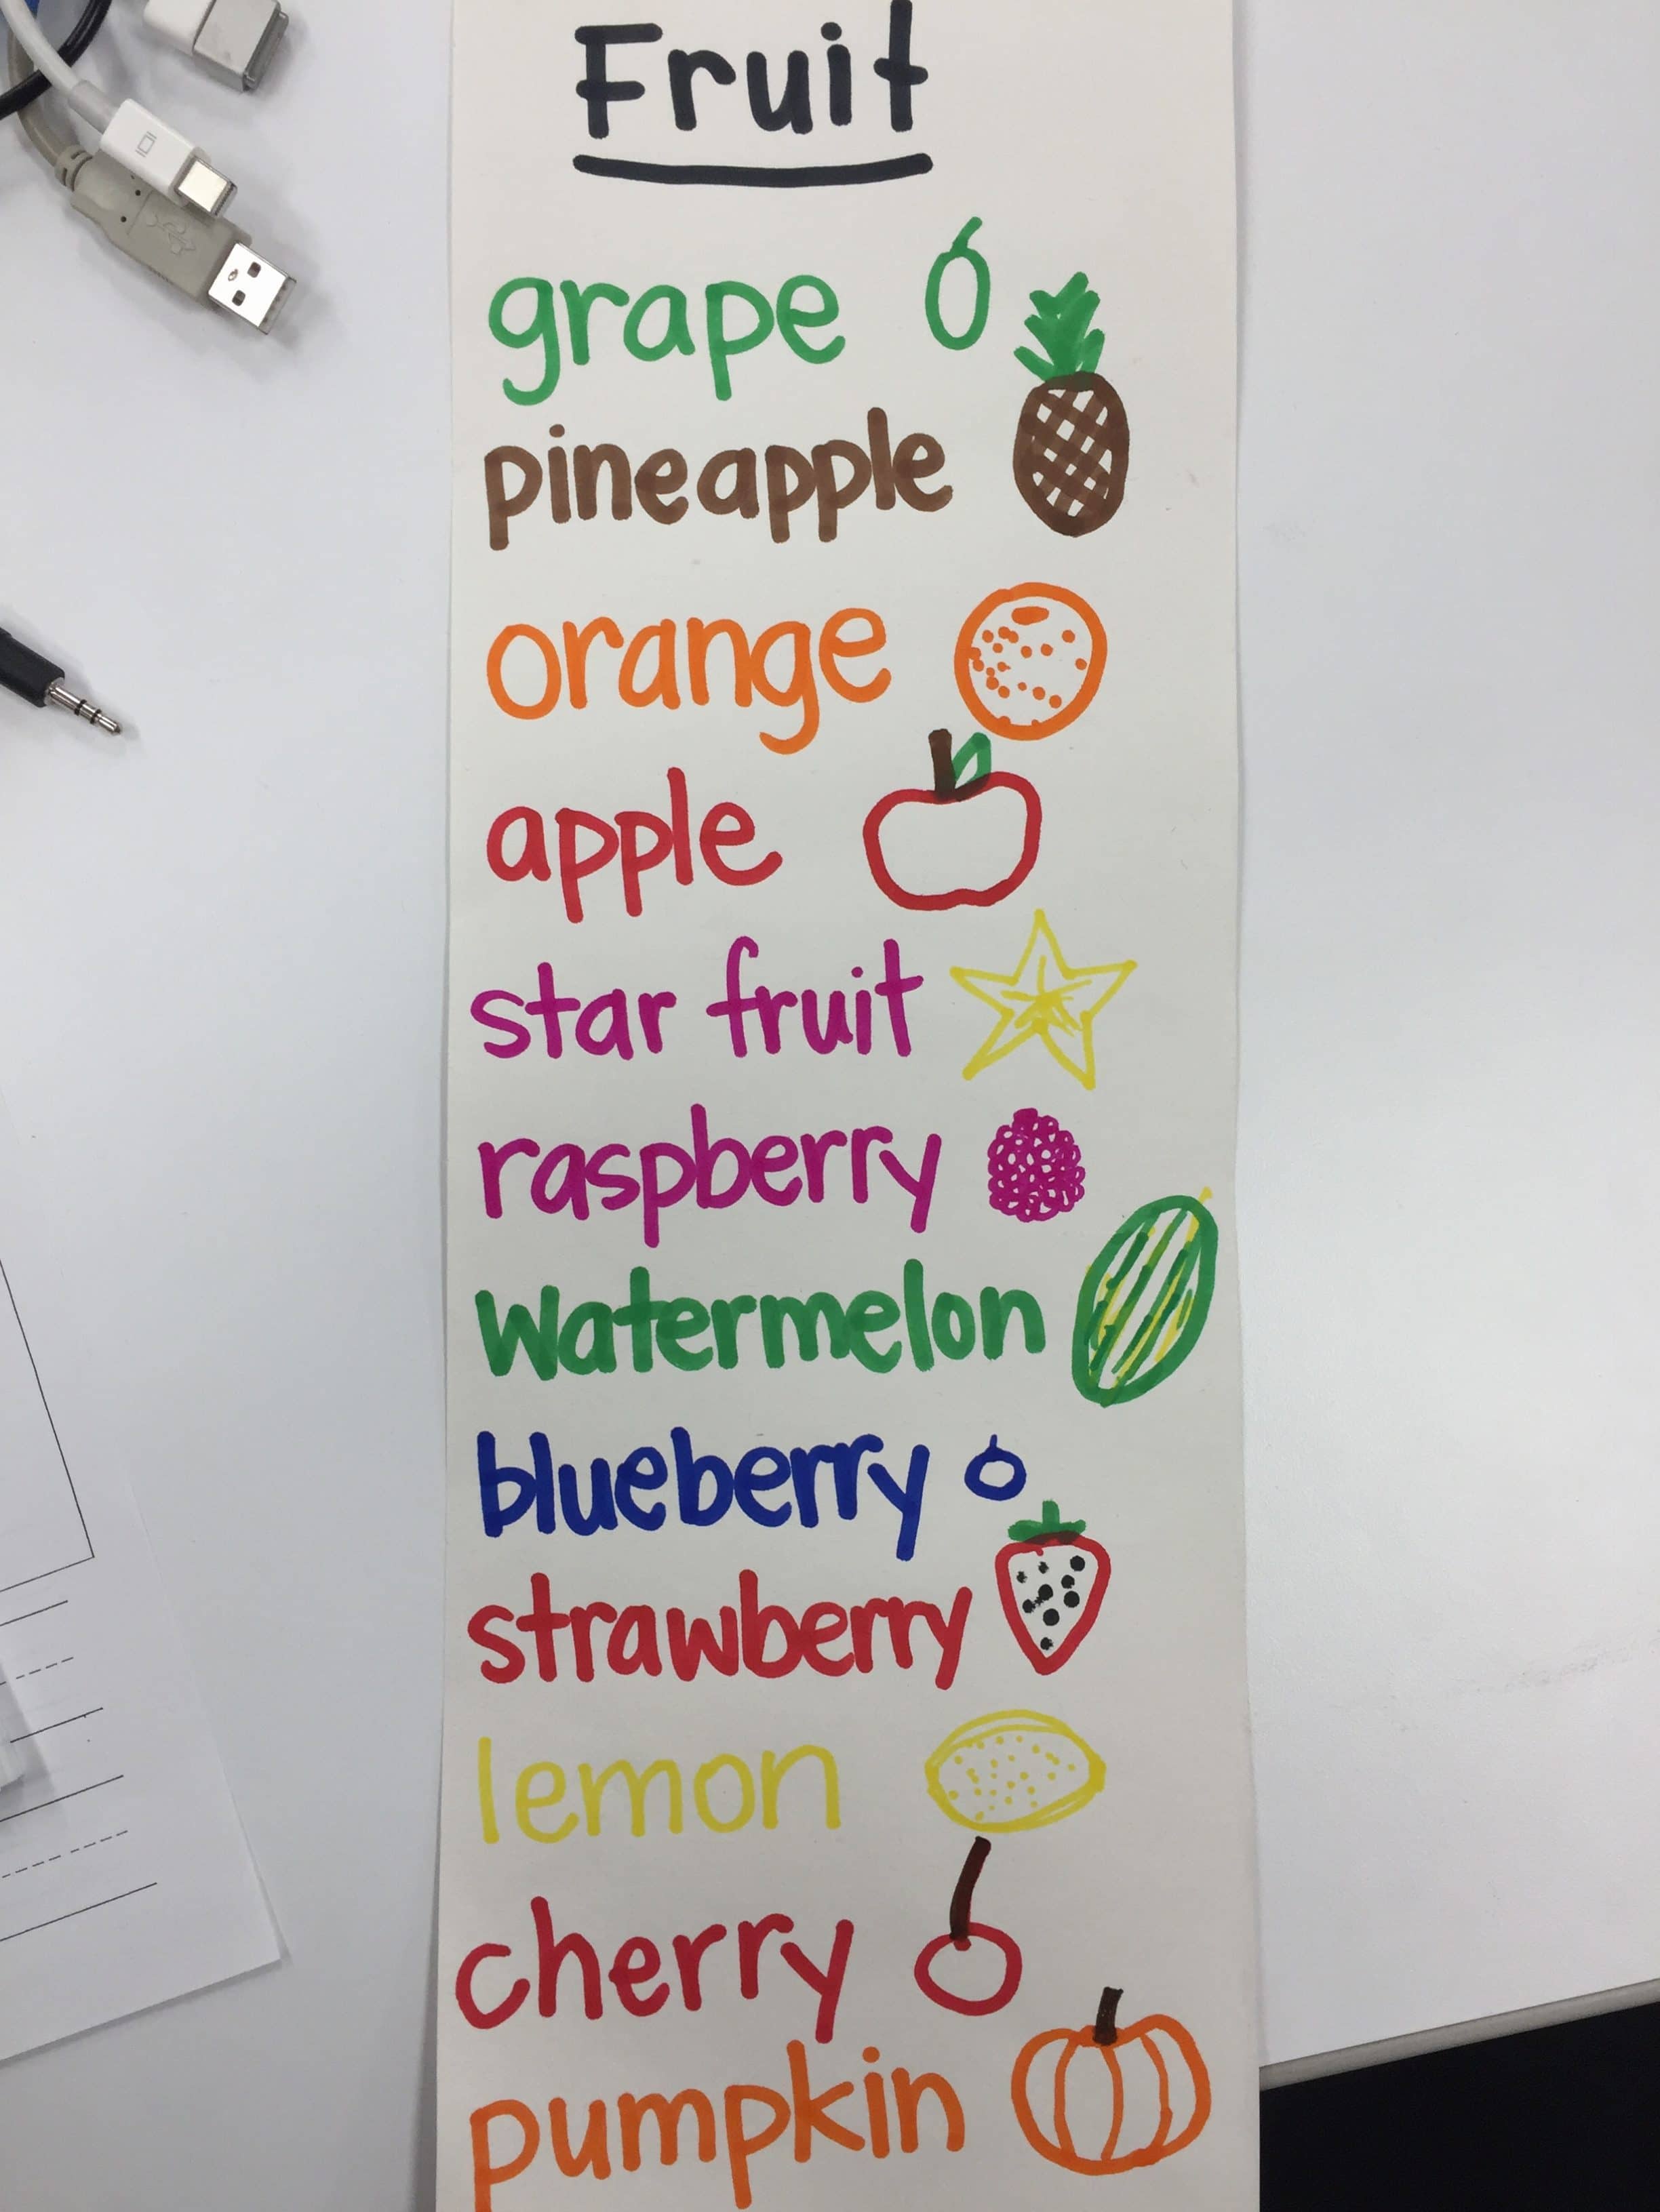 Fruit
grape
pineapple
orange
apple
star fruit
raspberry
watermelon
blueberry
strawberry
lemon
cherry
pumpkin